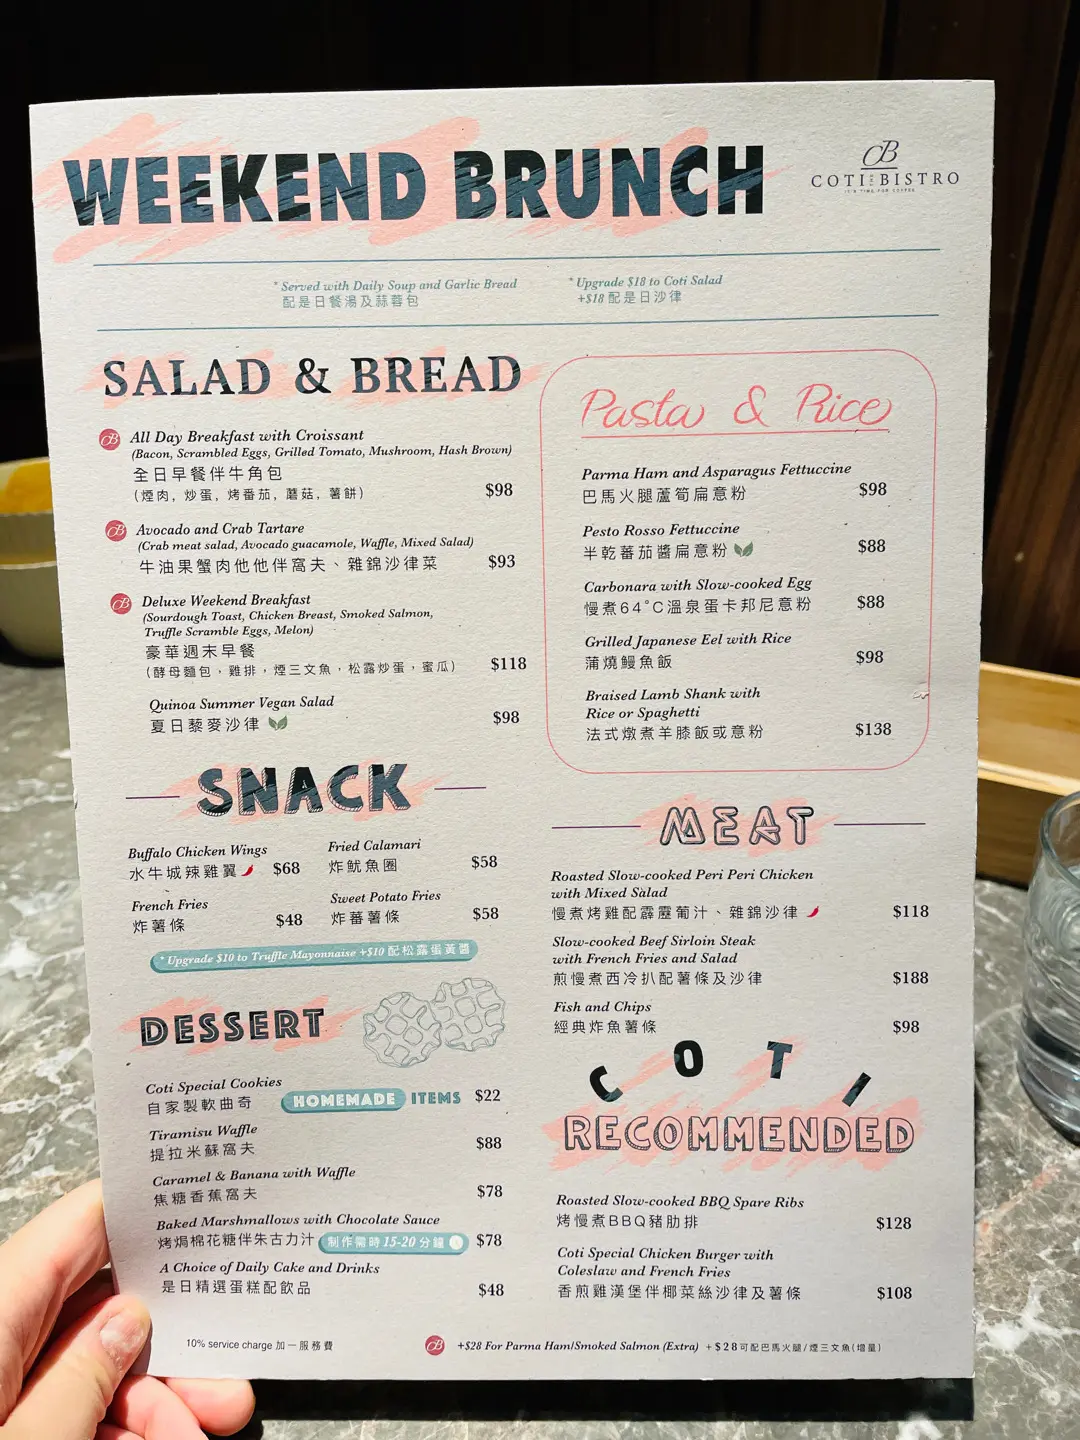 WEEKEND BRUNCH
CB
COTI BISTRO
IT'S TIME FOR COFFEE
* Served with Daily Soup and Garlic Bread
配是日餐湯及蒜蓉包
* Upgrade $18 to Coti Salad
+$18 配是日沙律
SALAD & BREAD
CB All Day Breakfast with Croissant
(Bacon, Scrambled Eggs, Grilled Tomato, Mushroom, Hash Brown)
全日早餐伴牛角包
(煙肉, 炒蛋, 烤番茄, 蘑菇, 薯餅) $98
CB Avocado and Crab Tartare
(Crab meat salad, Avocado guacamole, Waffle, Mixed Salad)
牛油果蟹肉他他伴窩夫、雜錦沙律菜 $93
CB Deluxe Weekend Breakfast
(Sourdough Toast, Chicken Breast, Smoked Salmon,
Truffle Scramble Eggs, Melon)
豪華週末早餐
(酵母麵包，雞排，煙三文魚，松露炒蛋，蜜瓜) $118
Quinoa Summer Vegan Salad
夏日藜麥沙律 $98
Pasta & Rice
Parma Ham and Asparagus Fettuccine
巴馬火腿蘆筍扁意粉 $98
Pesto Rosso Fettuccine
半乾蕃茄醬扁意粉 $88
Carbonara with Slow-cooked Egg
慢煮64°C溫泉蛋卡邦尼意粉 $88
Grilled Japanese Eel with Rice
蒲燒鰻魚飯 $98
Braised Lamb Shank with
Rice or Spaghetti
法式燉煮羊膝飯或意粉 $138
SNACK
Buffalo Chicken Wings
水牛城辣雞翼 $68
Fried Calamari
炸魷魚圈 $58
French Fries
炸薯條 $48
Sweet Potato Fries
炸蕃薯條 $58
* Upgrade $10 to Truffle Mayonnaise +$10 配松露蛋黃醬
MEAT
Roasted Slow-cooked Peri Peri Chicken
with Mixed Salad
慢煮烤雞配霹靂葡汁、雜錦沙律 $118
Slow-cooked Beef Sirloin Steak
with French Fries and Salad
煎慢煮西冷扒配薯條及沙律 $188
Fish and Chips
經典炸魚薯條 $98
DESSERT
Coti Special Cookies
自家製軟曲奇 HOMEMADE ITEMS $22
Tiramisu Waffle
提拉米蘇窩夫 $88
Caramel & Banana with Waffle
焦糖香蕉窩夫 $78
Baked Marshmallows with Chocolate Sauce
烤焗棉花糖伴朱古力汁 制作需時 15-20 分鐘 $78
A Choice of Daily Cake and Drinks
是日精選蛋糕配飲品 $48
COTI
RECOMMENDED
Roasted Slow-cooked BBQ Spare Ribs
烤慢煮BBQ豬肋排 $128
Coti Special Chicken Burger with
Coleslaw and French Fries
香煎雞漢堡伴椰菜絲沙律及薯條 $108
10% service charge 加一服務費
CB +$28 For Parma Ham/Smoked Salmon (Extra) +$28可配巴馬火腿/煙三文魚(增量)